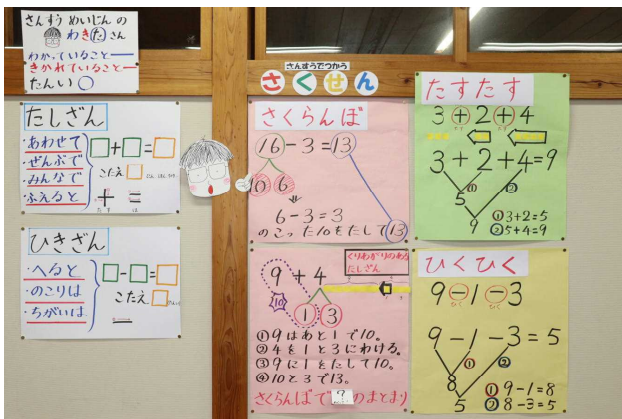 さんすう めいじんの
わきたさん
わかっていること
きかれていること
たんい○
たしざん
・あわせて
・ぜんぶで
・みんなで
・ふえると
□+□=□
こたえ□
+ =
たす は
ひきざん
・へると
・のこりは
・ちがいは
□-□=□
こたえ□
さんすうでつかう
さくせん
さくらんぼ
16-3=13
10 6
6-3=3
のこった10をたして13
くりあがりのある
たしざん
9+4
10
1 3
①9はあと1で10。
②4を1と3にわける。
③9に1をたして10。
④10と3で13。
さくらんぼで?のまとまり
たすたす
3+2+4
たす たす
3+2+4=9
① ②
5
9
①3+2=5
②5+4=9
ひくひく
9-1-3
ひく ひく
9-1-3=5
① ②
8
5
①9-1=8
②8-3=5